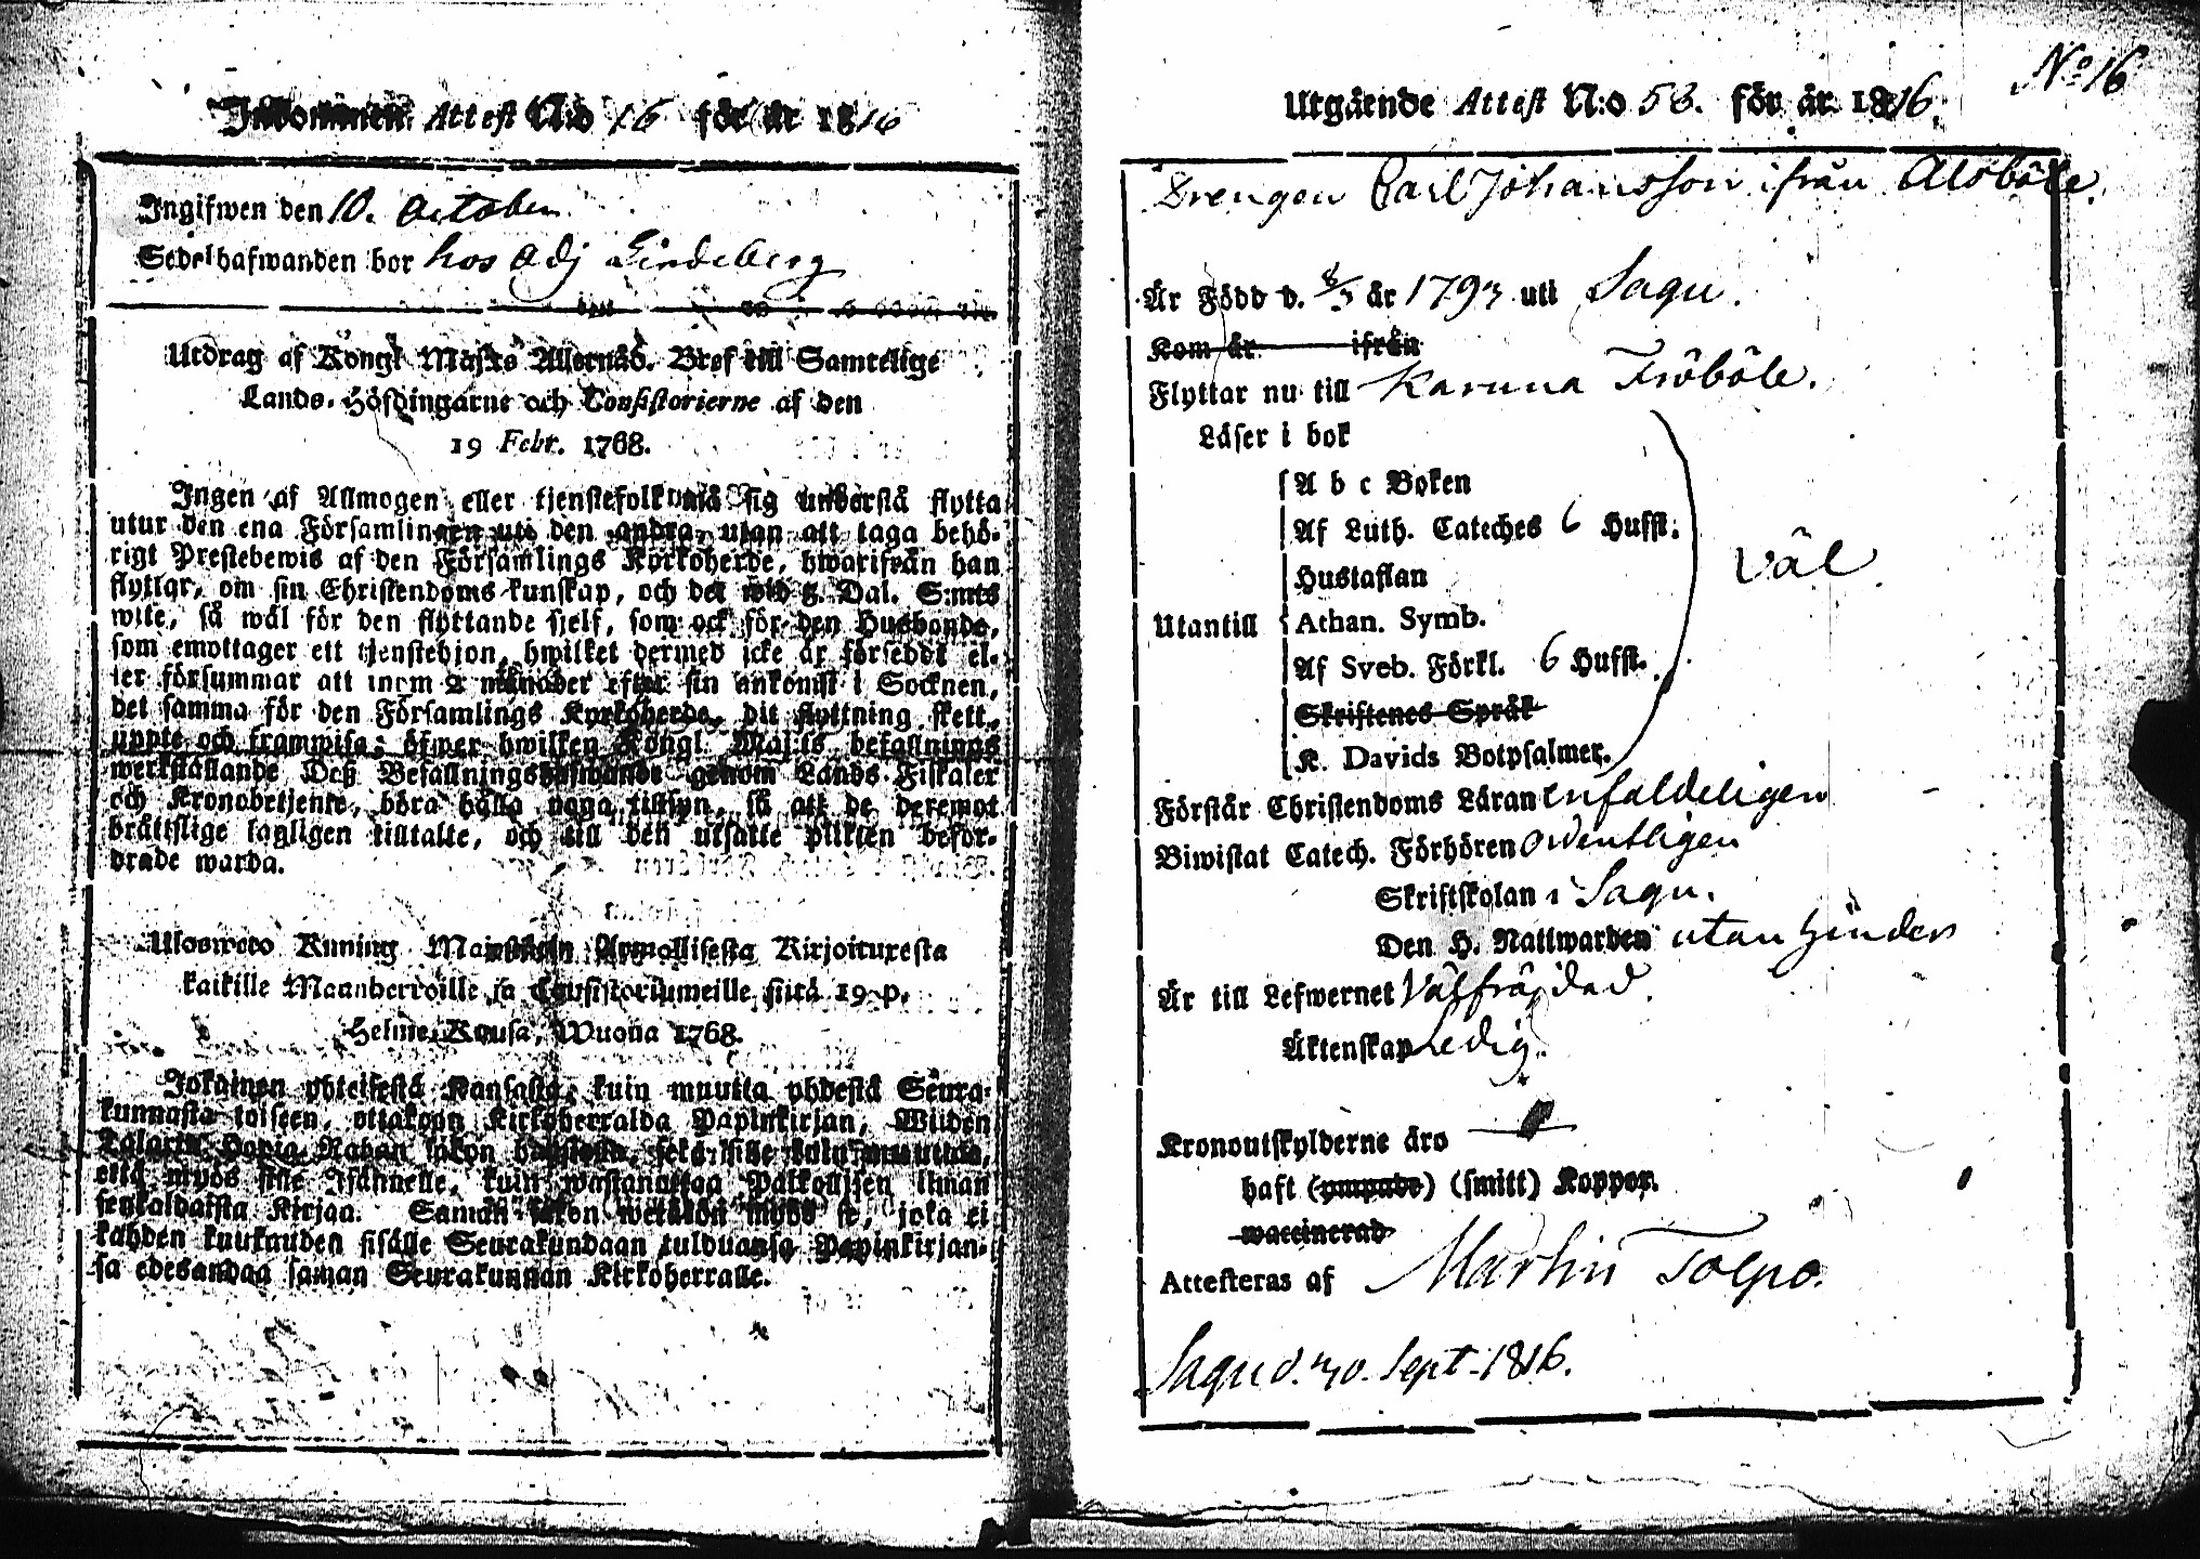 Inkommen Attest N:o 16 för år 1816
Ingifwen den 10. October
Sedelhafwanden bor hos Adj Lindeberg
Utdrag af Kongl Maj:ts Allernåd. Bref till Samtelige
Lands-Höfdingarne och Consistorierne af den
19 Febr. 1768.
Ingen af Allmogen eller tjenstefolk må sig understå flytta
utur den ena Församlingen uti den andra, utan att taga behö-
rigt Prestebewis af den Församlings Kyrkoherde, hwarifrån han
flyttar, om sin Christendoms kunskap, och det wid 8. Dal. S:mts
wite, så wäl för den flyttande sjelf, som ock för den Husbonde,
som emottager ett tjenstehjon, hwilket dermed icke är försedt el-
ler försummar att inom 2 månader efter sin ankomst i Socknen,
det samma för den Församlings Kyrkoherde, dit flyttning skett,
uppte och framwisa; öfwer hwilken Kongl. Maj:ts befallnings
werkställande Deß Befallningshafwande genom Lands-Fiskaler
och Kronobetjente, böra hålla noga tillsyn, så att de deremot
bråttslige lagligen tilltalte, och till den utsatte plikten befor-
drade warda.
Uloswetto Kuning. Majestetin Armollisesta Kirjoituxesta
kaikille Maanherroille ja Consistoriumeille siitä 19 p.
Helme-Kuusa, Wuona 1768.
Jokainen yhteisestä Kansasta, kuin muutta yhdestä Seura-
kunnasta toiseen, ottakoon Kirkoherralda Papinkirjan, Wiiden
Talarin Hopia Rahan sakon haastolla, sekä sille kuin muutta,
että myös sille Isännelle, kuin wastanottaa Palkollisen ilman
senkaldaista Kirjaa. Saman sakon wetäkön myös se, joka ei
kahden kuukauden sisälle Seurakundaan tulduansa Papinkirjan-
sa edesandaa saman Seurakunnan Kirkoherralle.
N:o 16
Utgående Attest N:o 58. för år 1816.
Drengen Carl Johansson ifrån Alsböle.
Är Född d. 8/3 år 1793 uti Sagu.
Kom år ifrån
Flyttar nu till Karuna Fröböle.
Läser i bok
A b c Boken
Af Luth. Cateches 6 Hufst.
Hustaflan
Väl
Utantill Athan. Symb.
Af Sveb. Förkl. 6 Hufst.
Skriftenes Språk
K. Davids Botpsalmer.
Förstår Christendoms Läran enfaldeligen
Biwistat Catech. Förhören ordentligen
Skriftskolan i Sagu.
Den H. Nattwarden utan hinder
Är till Lefwernet Välfräjdad.
Äktenskap Ledig.
Kronoutskylderne äro
haft (ympade) (smitt) Koppor.
waccinerad
Attesteras af Martin Tolpo.
Sagu d. 30. Sept. 1816.